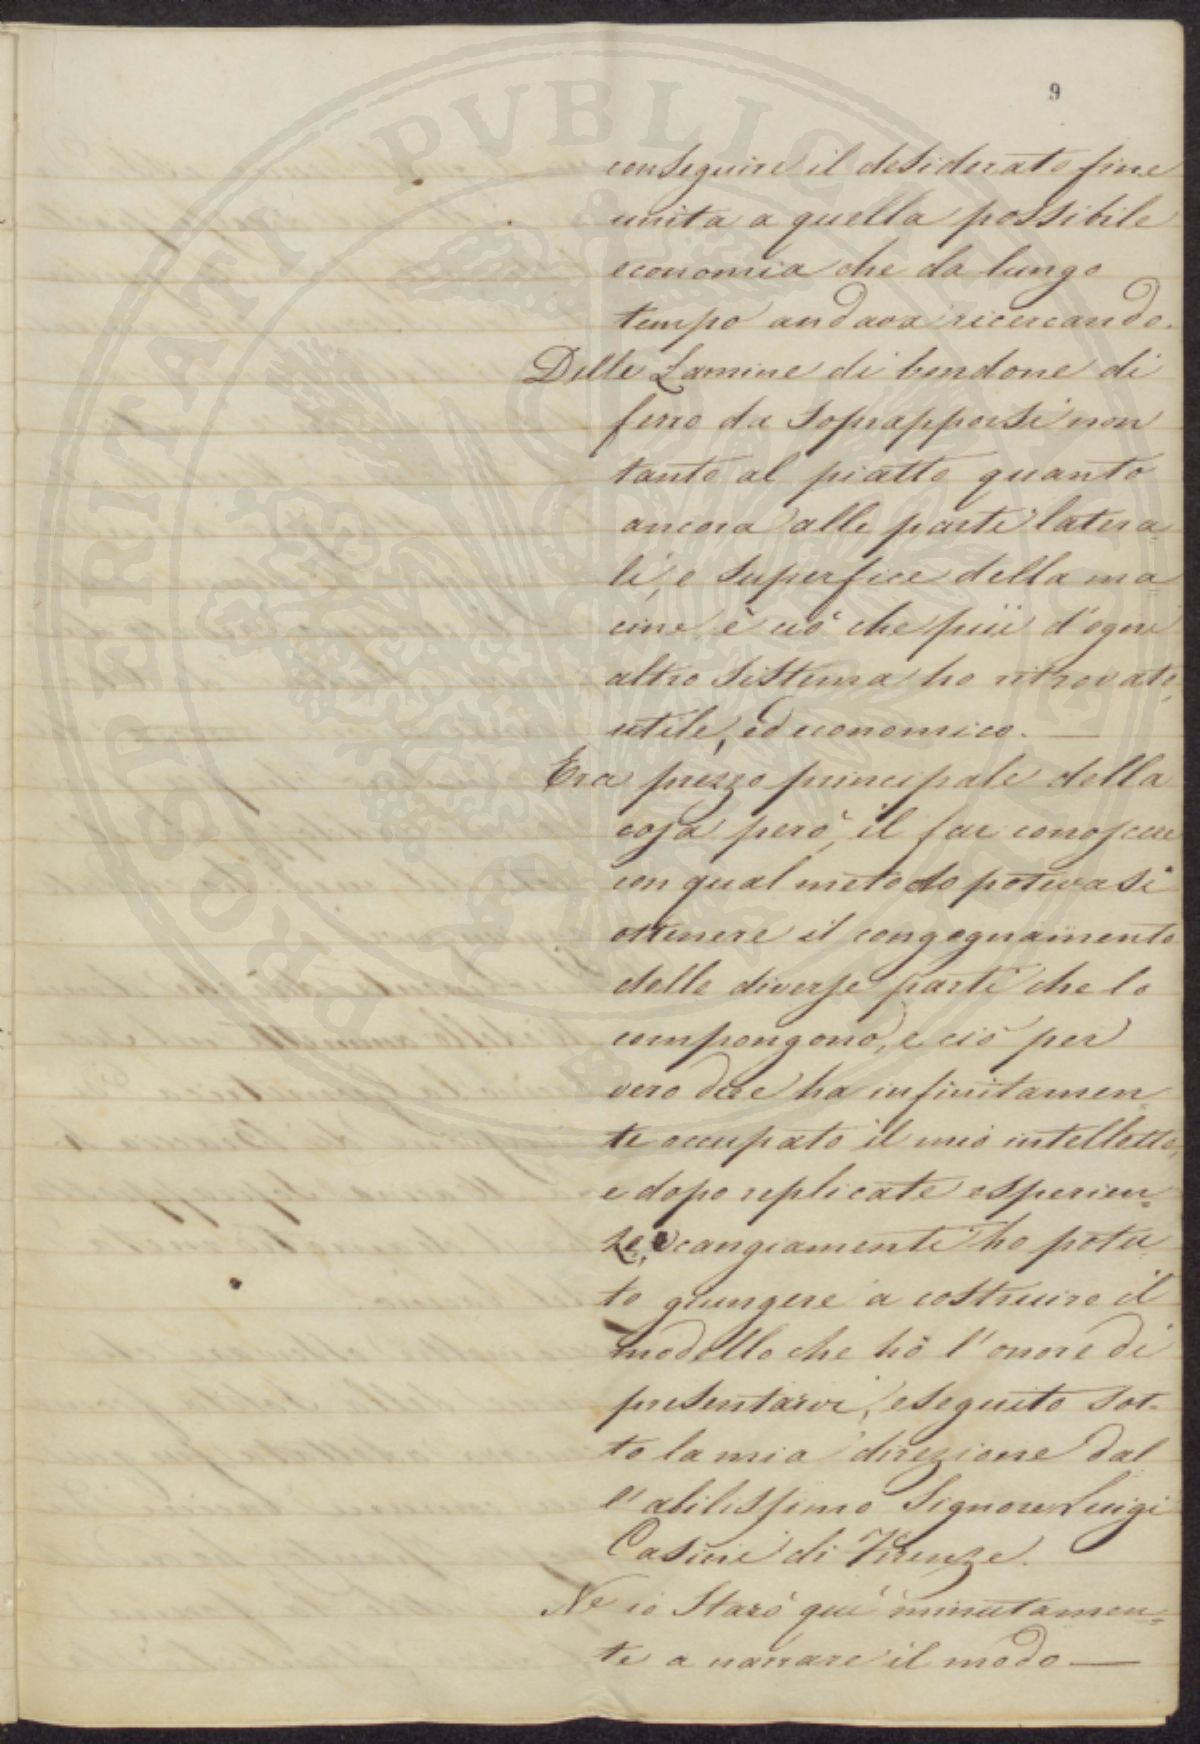 9
conseguire il desiderato fine
unita a quella possibile
economia che da lungo
tempo andava ricercando.
Delle Lamine di bandone di
ferro da soprapporsi non
tanto al piatto quanto
ancora alle parti latera-
li, e superfice della ma-
cine, è ciò che più d'ogni
altro sistema ho ritrovato
utile, ed economico. —
Era prezzo principale della
cosa però, il far conoscere
con qual metodo potevasi
ottenere il congegnamento
delle diverse parti che lo
compongono, e ciò per
vero dire ha infinitamen-
te occupato il mio intelletto,
e dopo replicate esperien-
ze, e cangiamenti ho potu-
to giungere a costruire il
modello che hò l'onore di
presentarvi, eseguito sot-
to la mia direzione dal
l'abilissimo Signore Luigi
Casini di Firenze.
Ne io starò qui minutamen-
te a narrare il modo —
PROSPERITATI PVBLICAE